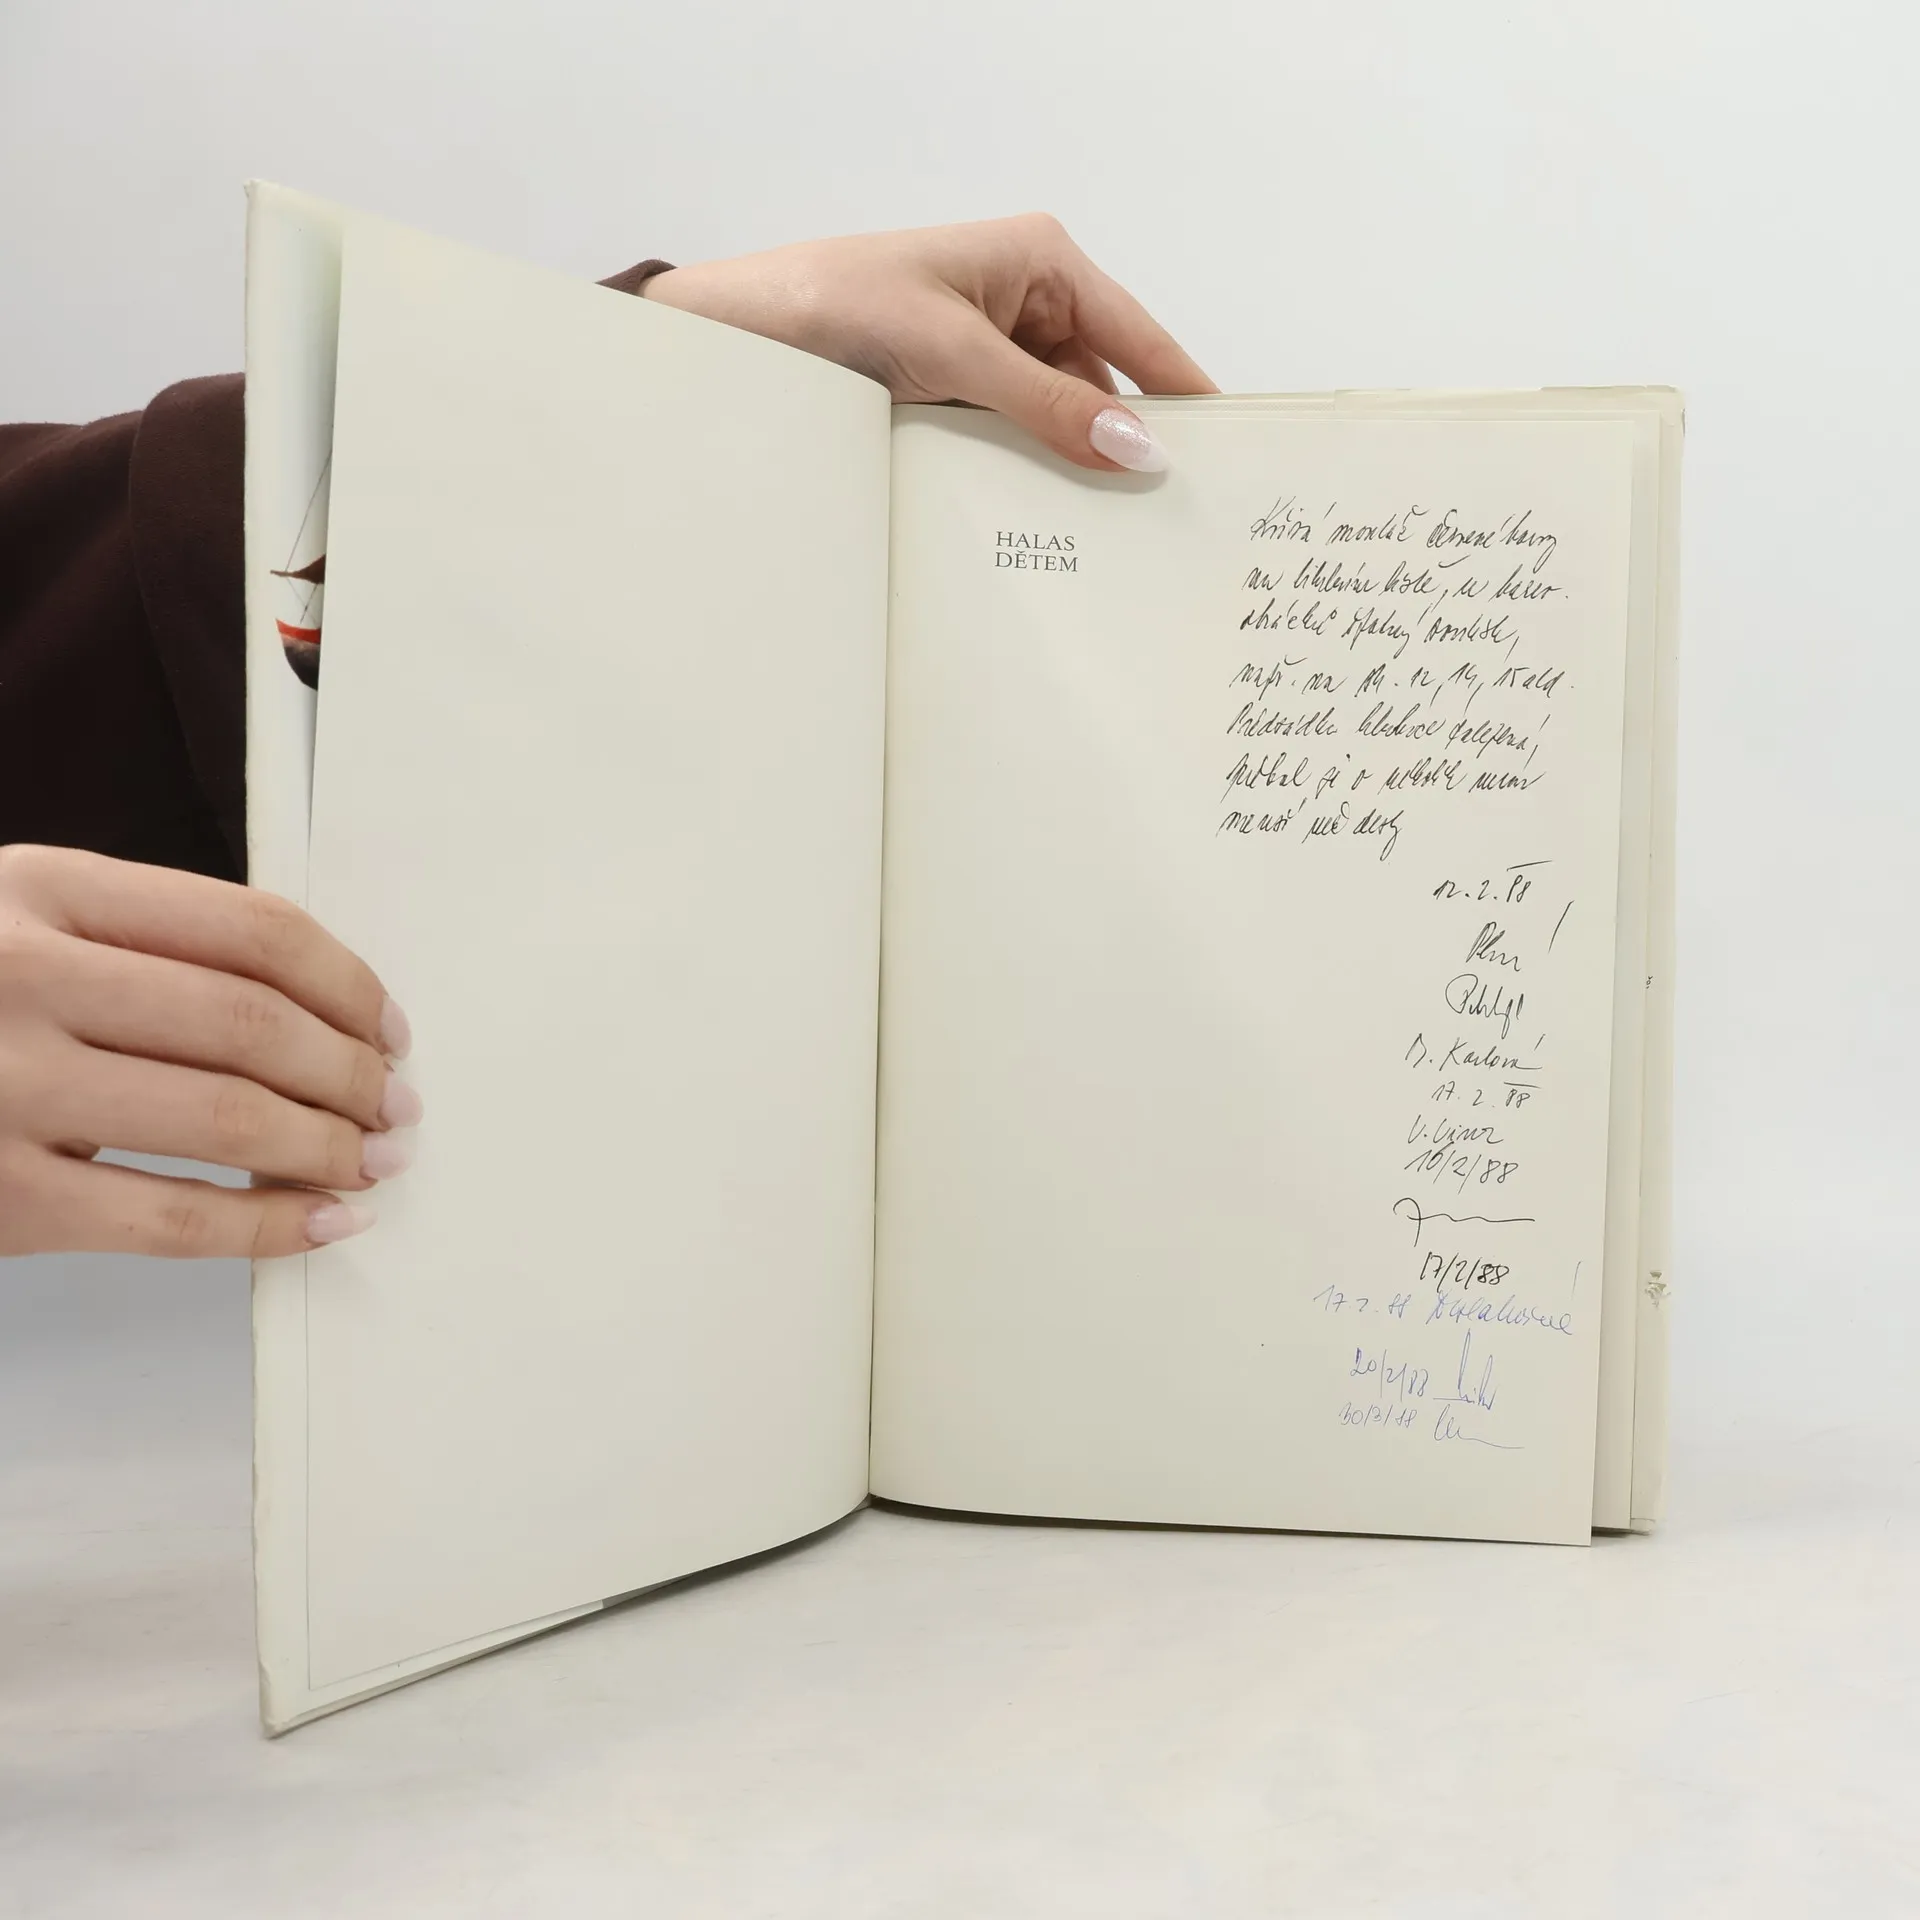 HALAS
DĚTEM
Křivá montáž červené barvy
na titulním listě, u barev.
obrázků špatný soutisk,
např. na str. 12, 14, 15 atd.
Předsádka hluboce zalepená,
přebal je o několik mm
menší než desky
12. 2. 88
B. Karlová
17. 2. 88
V.
16/2/88
17/2/88
17. 2. 88
20/2/88
30/3/88